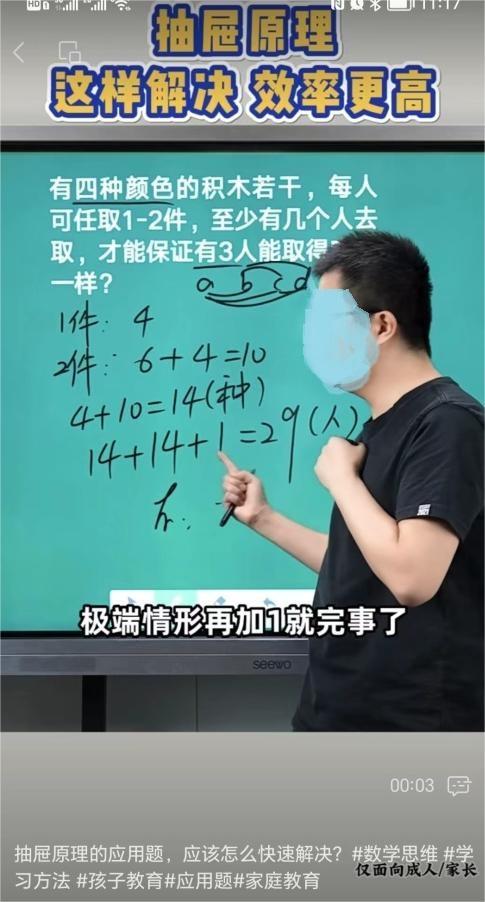 11:17
抽屉原理
这样解决 效率更高
有四种颜色的积木若干，每人
可任取1-2件，至少有几个人去
取，才能保证有3人能取得
一样？
a b c d
1件：4
2件：6+4=10
4+10=14(种)
14+14+1=29(人)
极端情形再加1就完事了
seewo
00:03
抽屉原理的应用题，应该怎么快速解决？#数学思维 #学
习方法 #孩子教育#应用题#家庭教育
仅面向成人/家长